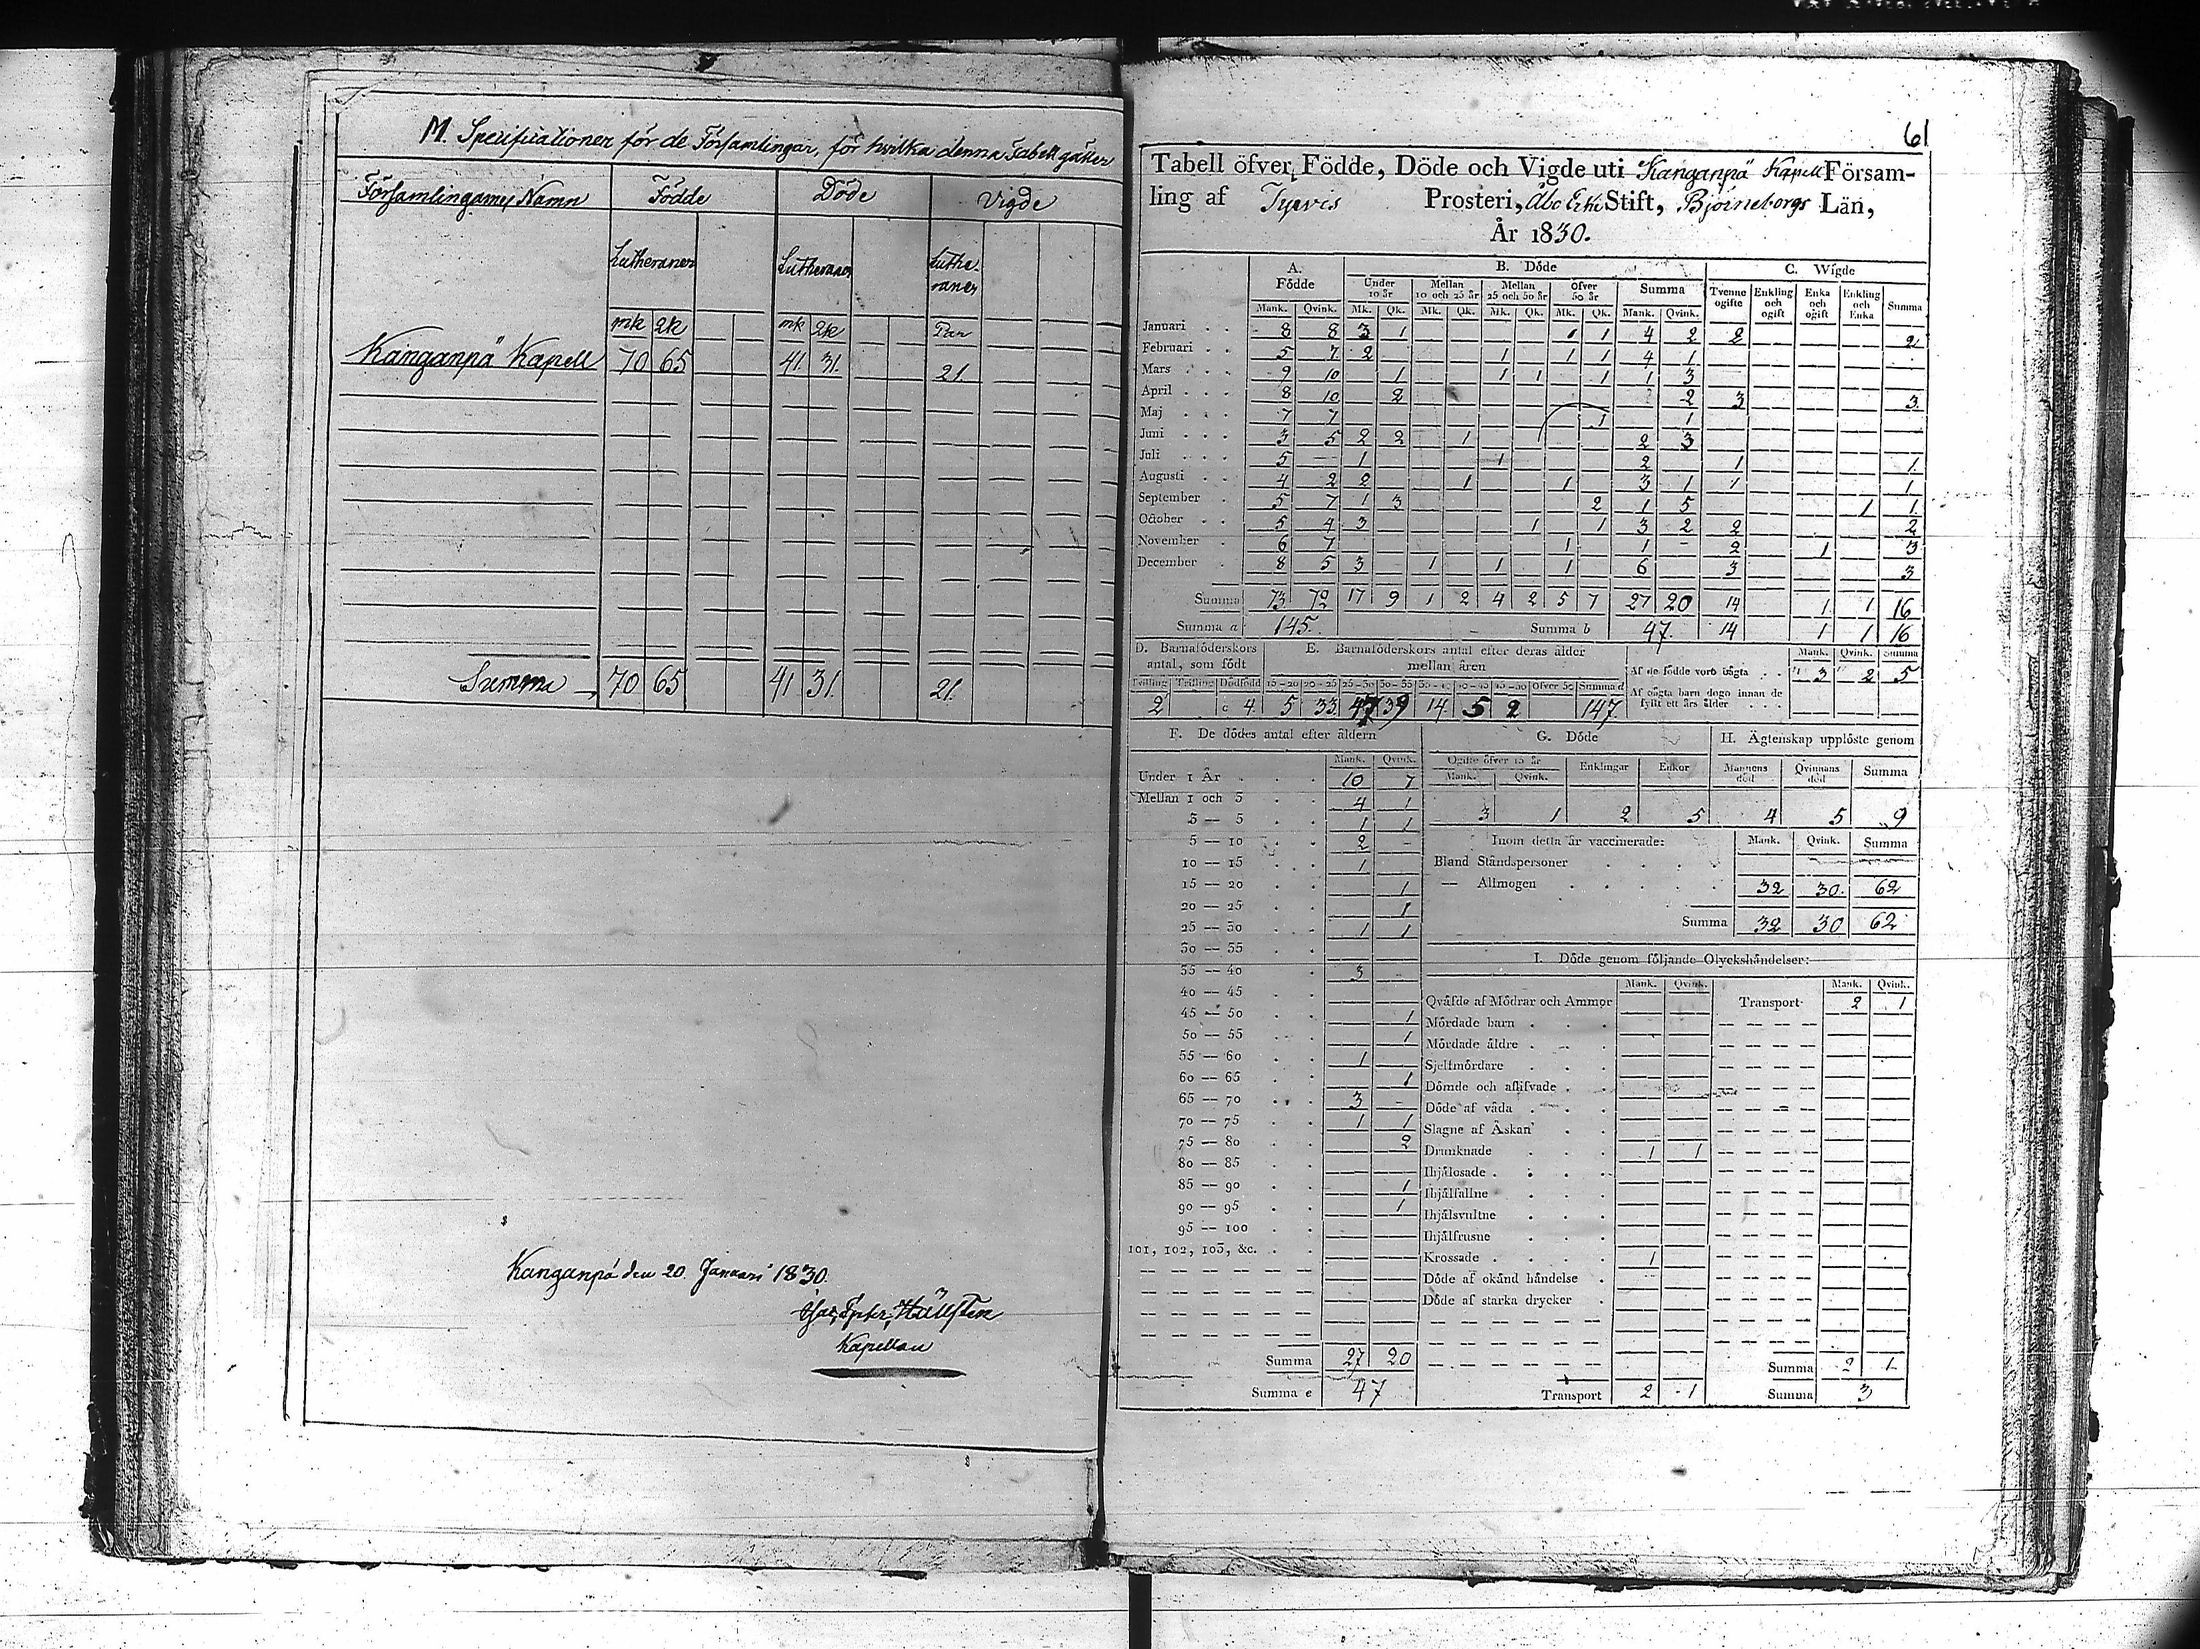 M. Specificationer för de Församlingar, för hwilka denna Tabell gäller
Församlingarnes Namn Födde Döde Vigde
Lutheraner Lutheraner Luthe-
raner
mk qk mk qk Par
Kanganpä Kapell 70 65 41 31. 21.
Summa 70 65 41 31. 21.
Kanganpä den 20 Januari 1830.
Hällsten
Kapellan
61
Tabell öfver Födde, Döde och Vigde uti Kanganpä Kapell Försam-
ling af Tyrvis Prosteri, Åbo Erke Stift, Björneborgs Län,
År 1830.
A. Födde B. Döde C. Wigde
Under 10 år Mellan 10 och 25 år Mellan 25 och 50 år Öfver 50 år Summa Tvenne ogifte Enkling och ogift Enka och ogift Enkling och Enka Summa
Mank. Qvink. Mk. Qk. Mk. Qk. Mk. Qk. Mk. Qk. Mank. Qvink.
Januari 8 8 3 1 1 1 4 2 2 2
Februari 5 7 2 1 1 1 4 1
Mars 9 10 1 1 1 1 1 3
April 8 10 2 2 3 3
Maj 7 7 1 1
Juni 3 5 2 2 1 2 3
Juli 5 - 1 1 2 1 1
Augusti 4 2 2 1 1 3 1 1 1
September 5 7 1 3 2 1 5 1 1
October 5 4 3 1 1 3 2 2 2
November 6 7 1 1 - 2 1 3
December 8 5 3 1 1 1 6 3 3
Summa 73 72 17 9 1 2 4 2 5 7 27 20 14 1 1 16
Summa a 145. Summa b 47. 14 1 1 16
D. Barnaföderskors antal, som födt
Tvilling Trilling Dödfödd
2 c 4.
E. Barnaföderskors antal efter deras ålder mellan åren
15-20 20-25 25-30 30-35 35-40 40-45 45-50 Öfver 50 Summa d
5 33 47 39 14 5 2 147.
Mank. Qvink. Summa
Af de födde voro oägta 3 2 5
Af oägta barn dogo innan de
fyllt ett års ålder
F. De dödes antal efter åldern
Mank. Qvink.
Under 1 År 10 7
Mellan 1 och 3 4 1
3 — 5 1 1
5 — 10 2 -
10 — 15 1
15 — 20 1
20 — 25 1
25 — 30 1 1
30 — 35
35 — 40 3 -
40 — 45
45 — 50 1
50 — 55 1
55 — 60 1
60 — 65 1
65 — 70 3 -
70 — 75 1 1
75 — 80 2
80 — 85
85 — 90 1
90 — 95 1
95 — 100
101, 102, 103, &c.
Summa 27 20
Summa e 47
G. Döde
Ogifte öfver 15 år Enklingar Enkor
Mank. Qvink.
3 1 2 5
H. Ägtenskap upplöste genom
Mannens död Qvinnans död Summa
4 5 9
Inom detta år vaccinerade: Mank. Qvink. Summa
Bland Ståndspersoner
— Allmogen 32 30. 62
Summa 32 30 62
I. Döde genom följande Olyckshändelser:
Mank. Qvink. Mank. Qvink.
Qväfde af Mödrar och Ammor Transport 2 1
Mördade barn
Mördade äldre
Sjelfmördare
Dömde och aflifvade
Döde af våda
Slagne af Åskan
Drunknade 1 1
Ihjälosade
Ihjälfallne
Ihjälsvultne
Ihjälfrusne
Krossade 1
Döde af okänd händelse
Döde af starka drycker
Summa 2 1
Transport 2 1 Summa 3